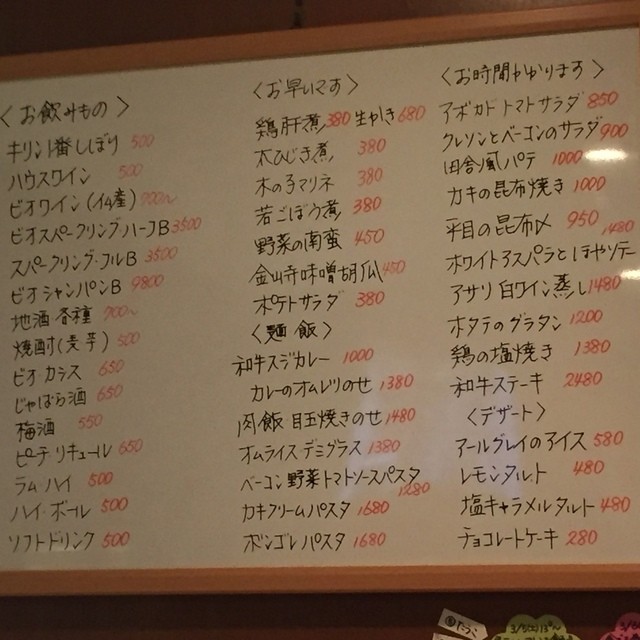 〈お飲みもの〉
キリン1番しぼり 500
ハウスワイン 500
ビオワイン(仏産) 700〜
ビオスパークリング・ハーフB 3500
スパークリング・フルB 3500
ビオシャンパンB 9800
地酒 各種 700〜
焼酎(麦芋) 500
ビオ・カシス 650
じゃばら酒 650
梅酒 550
ピーチリキュール 650
ラム・ハイ 500
ハイ・ボール 500
ソフトドリンク 500
〈お早いです〉
鶏肝煮 380 生ゆき 680
太ひじき煮 380
木の子マリネ 380
若ごぼう煮 380
野菜の南蛮 450
金山寺味噌胡瓜 450
ポテトサラダ 380
〈麺 飯〉
和牛スジカレー 1000
カレーのオムレツのせ 1380
肉飯 目玉焼きのせ 1480
オムライスデミグラス 1380
ベーコン野菜トマトソースパスタ 1280
カキクリームパスタ 1680
ボンゴレパスタ 1680
〈お時間かかります〉
アボカドトマトサラダ 850
クレソンとベーコンのサラダ 900
田舎風パテ 1000
カキの昆布焼き 1000
平目の昆布〆 950
ホワイトアスパラとほやソテー 1480
アサリ白ワイン蒸し 1480
ホタテのグラタン 1200
鶏の塩焼き 1380
和牛ステーキ 2480
〈デザート〉
アールグレイのアイス 580
レモンタルト 480
塩キャラメルタルト 480
チョコレートケーキ 280